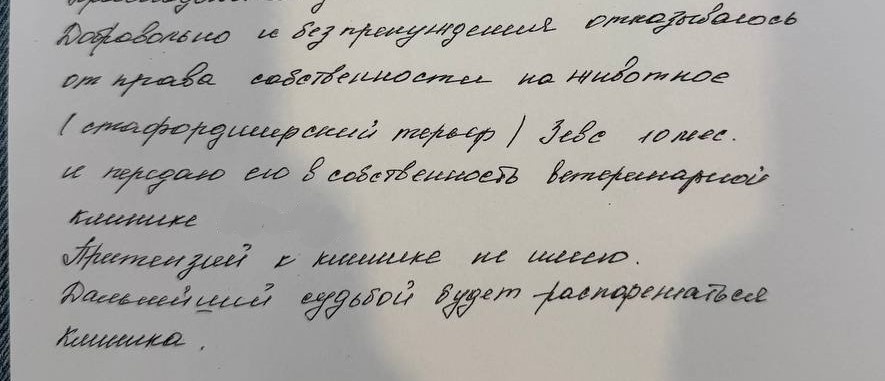 Добровольно и без принуждения отказываюсь
от права собственности на животное
(стафордширский терьер) Зевс 10 мес.
и передаю его в собственность ветеринарной
клинике
Притензий к клинике не имею.
Дальнейший судьбой будет распоряжаться
клиника.